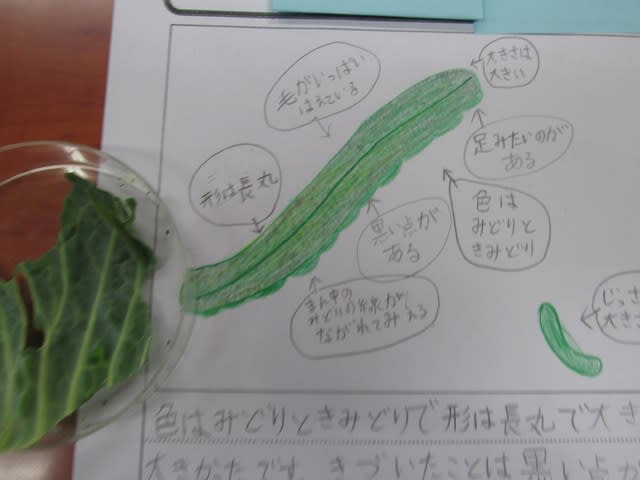 大きさは
大きい
毛がいっぱい
はえている
足みたいのが
ある
形は長丸
色は
みどりと
きみどり
黒い点が
ある
まん中の
みどりの線が
ながれてみえる
じっさ
大きさ
色はみどりときみどりで形は長丸で大き
大きかたです。きづいたことは黒い点が